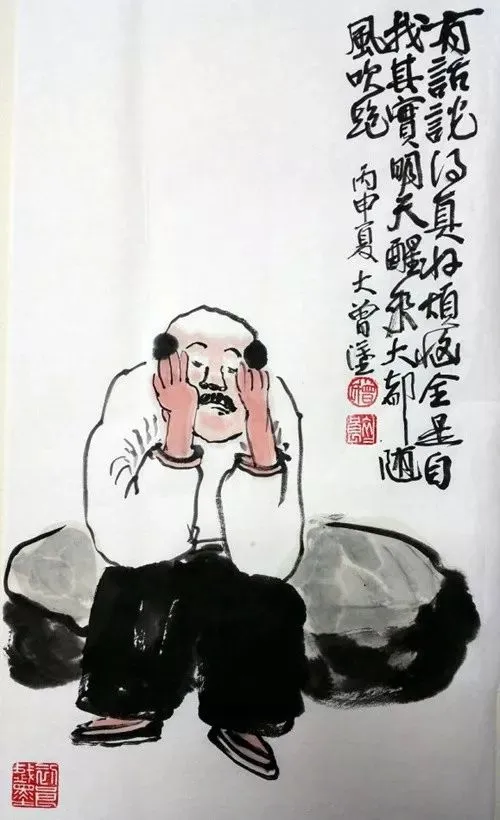 有話說得真好煩惱全是自
找其實明天醒來大都随
風吹跑
丙申夏大曾塗